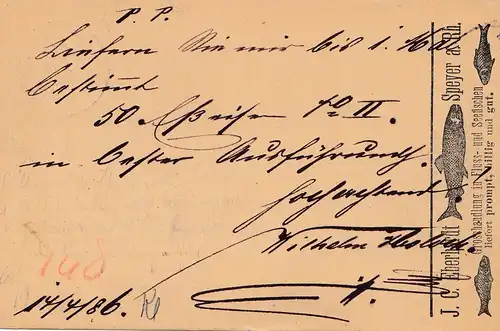 P. P.
Liefern Sie mir bis 1. Mai
bestimmt
50
II.
in bester Ausführung.
Hochachtend.
Wilhelm
148
14/4/86.
J. C. Eberhardt Speyer a. Rh.
Grosshandlung in Fluss- und Seefischen
liefert prompt, billig und gut.